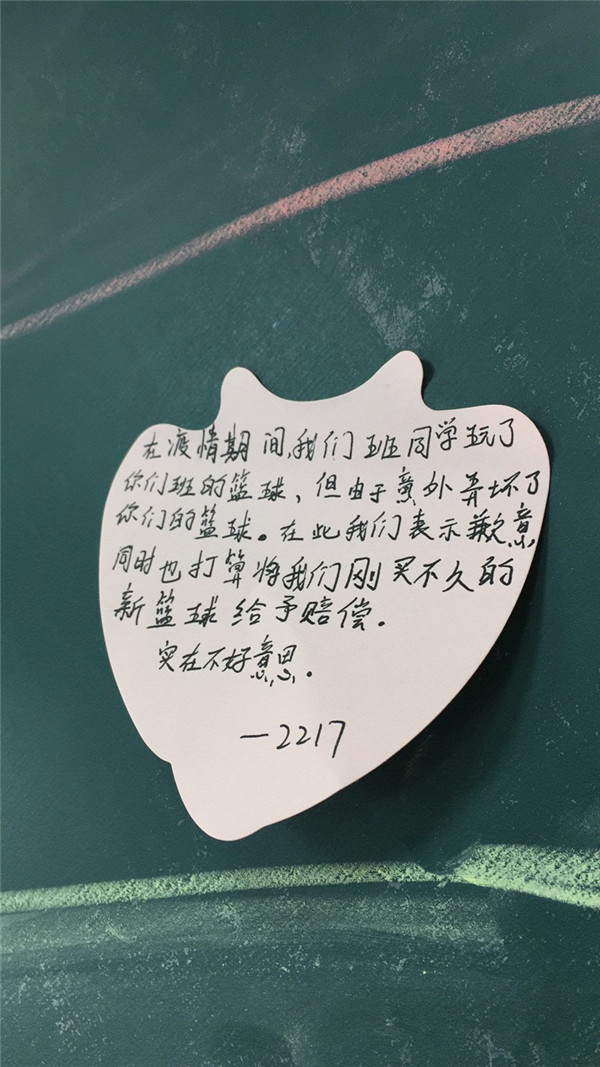 在疫情期间,我们班同学玩了
你们班的篮球，但由于意外弄坏了
你们的篮球。在此我们表示歉意
同时也打算将我们刚买不久的
新篮球给予赔偿。
实在不好意思。
—2217